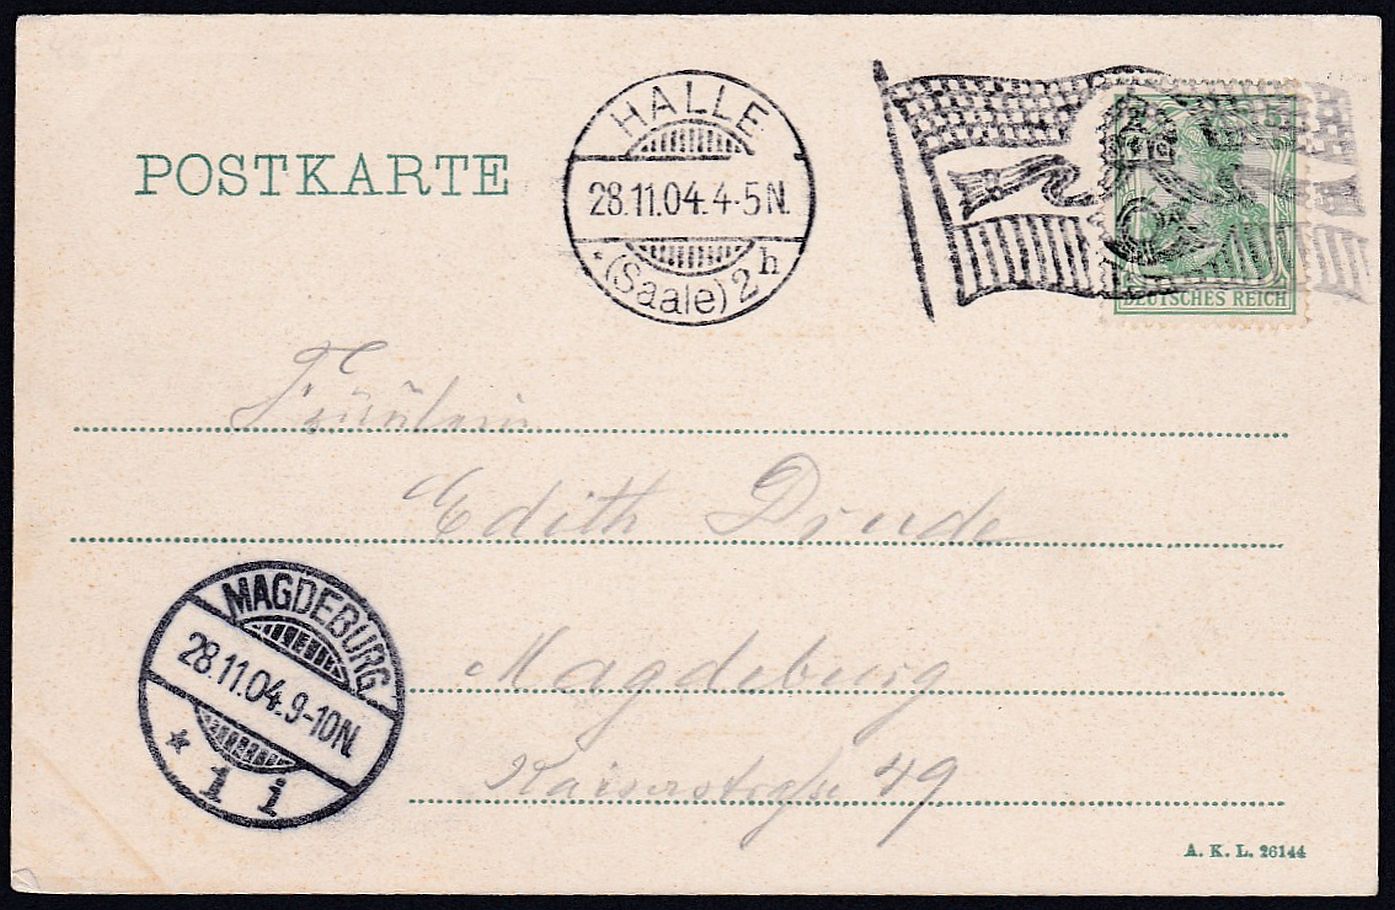 POSTKARTE
HALLE
28.11.04.4-5N.
* (Saale) 2h
5
DEUTSCHES REICH
Fräulein
Edith Drude
Magdeburg
Kaiserstraße 49
MAGDEBURG
28.11.04.9-10N.
* 1 i
A. K. L. 26144